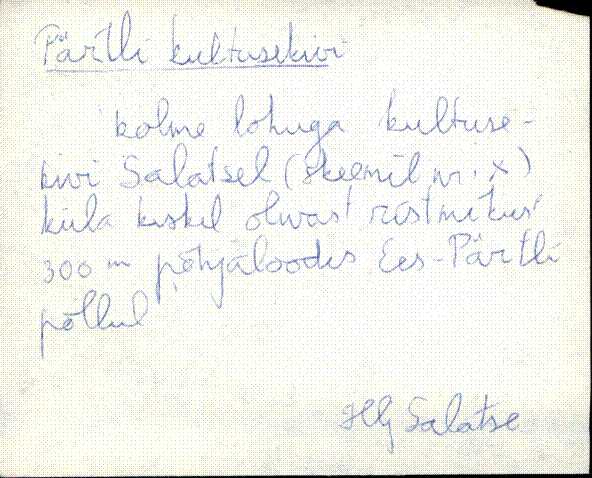 Pärtli kultusekivi
kolme lohuga kultuse-
kivi Salatsel (skeemil nr. x)
küla keskel olvast ristmikust
300 m põhjaloodes Ees-Pärtli
põllul
Hlj Salatse